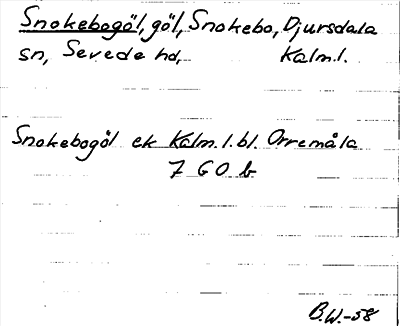 Snokebogöl, göl, Snokebo, Djursdala
sn, Sevede hd, Kalm.l.
Snokebogöl ek Kalm.l.bl. Orremåla
7 G O b
B.W.-58